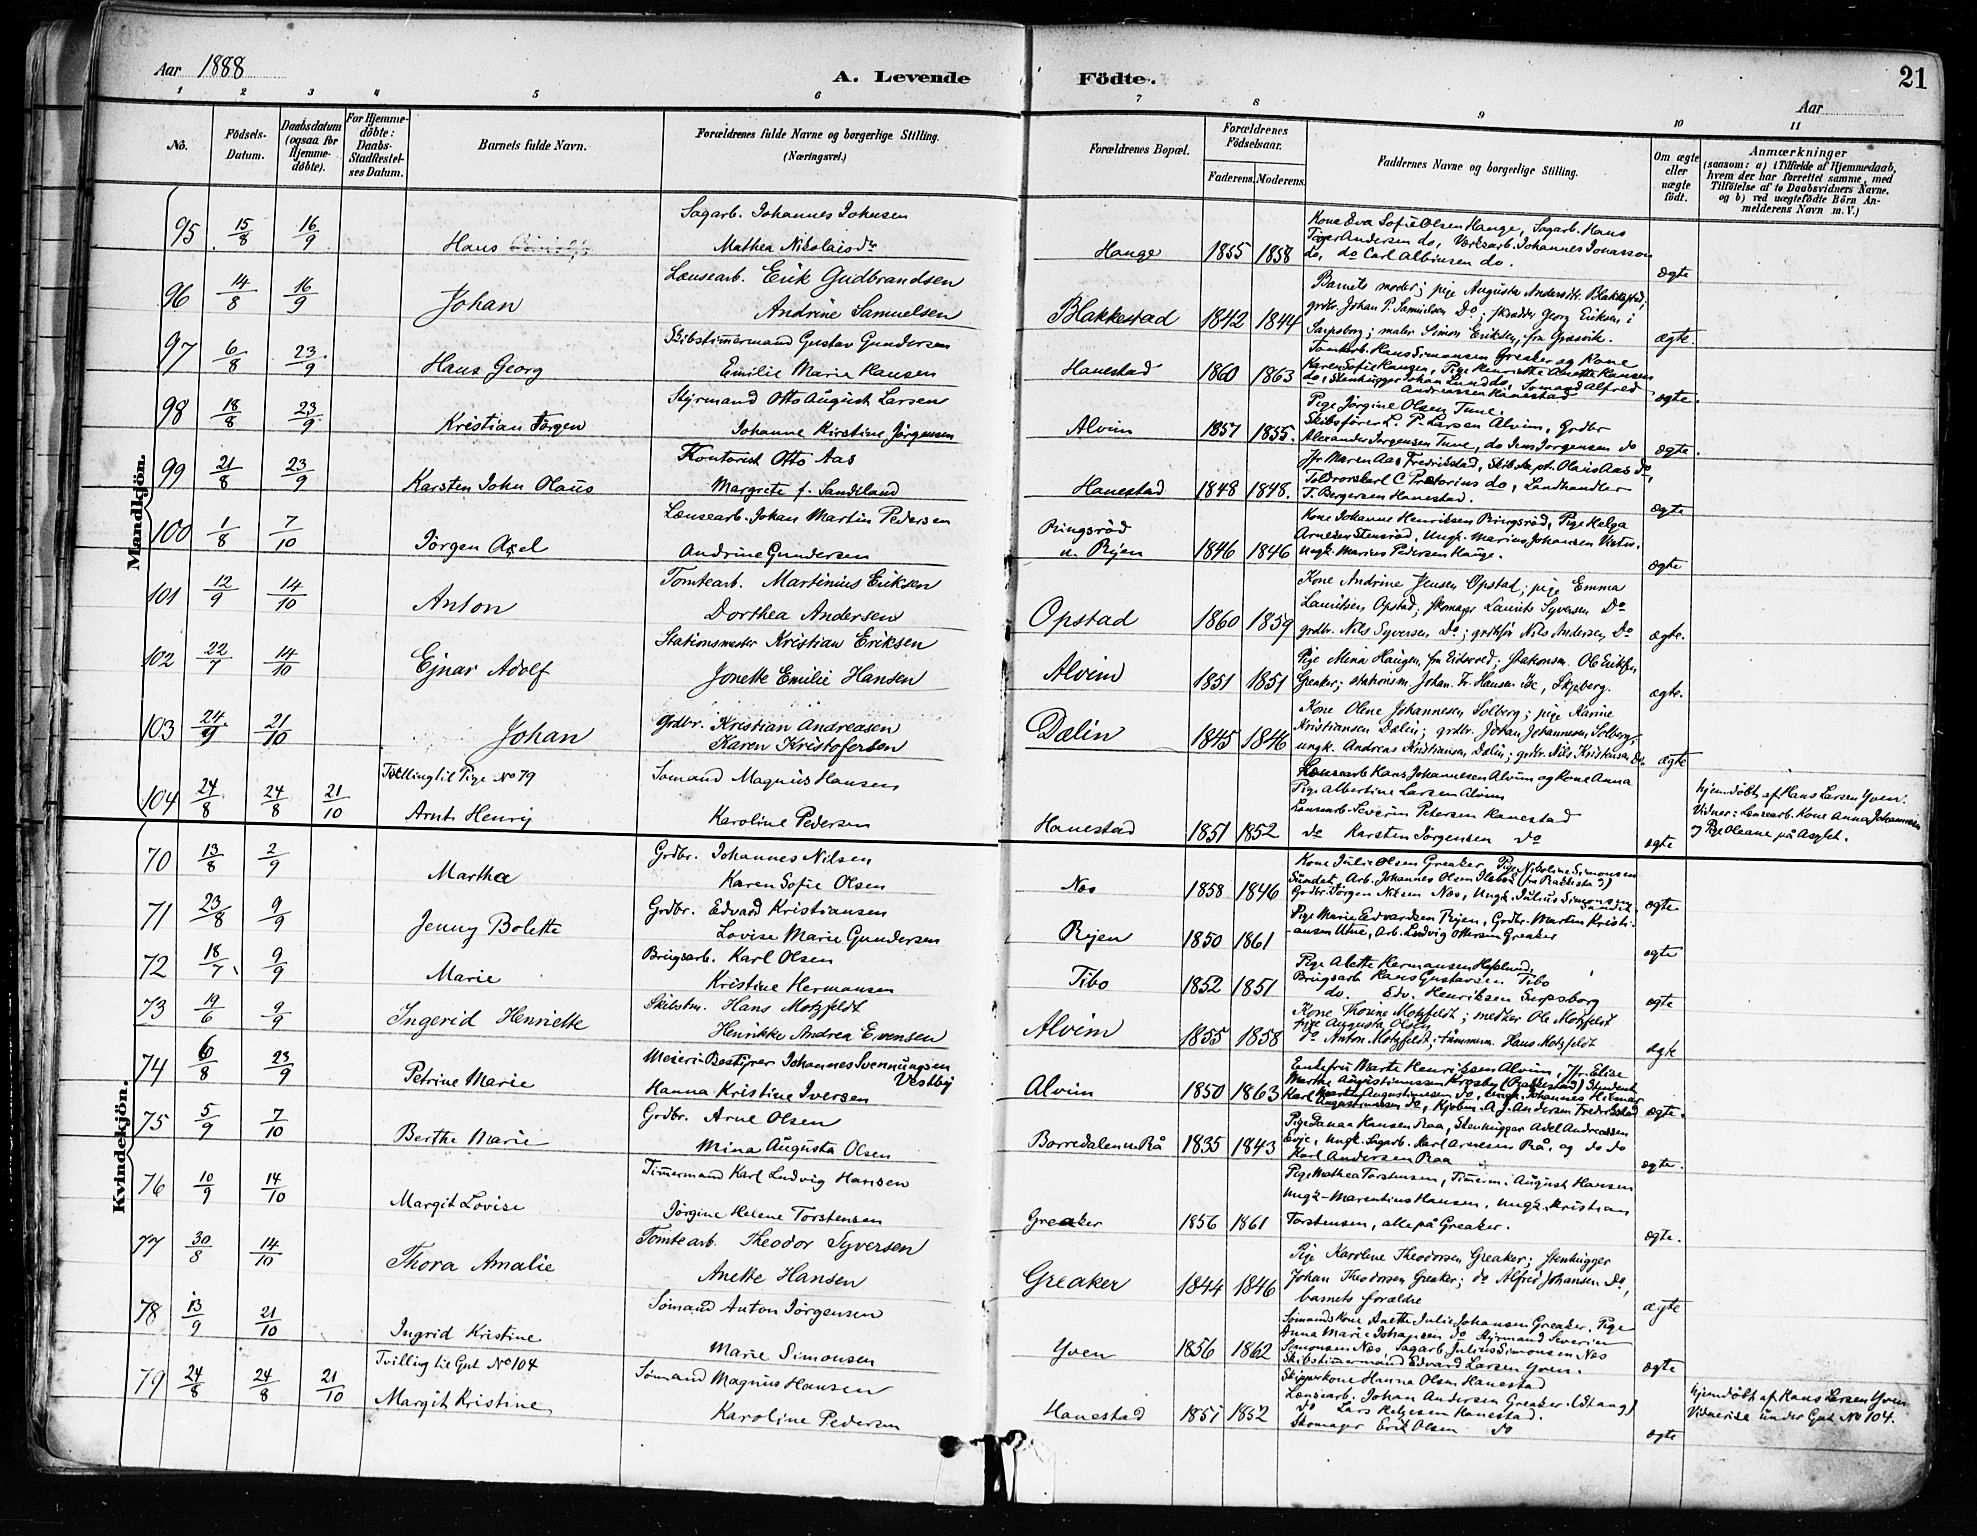 Aar 1888
A. Levende Födte.
21
Aar
1 2 3 4 5 6 7 8 9 10 11
No.
Födsels-Datum.
Daabsdatum (ogsaa for Hjemme-döbte).
For Hjemme-döbte: Daabs-Stadfestelses Datum.
Barnets fulde Navn.
Forældrenes fulde Navne og borgerlige Stilling. (Næringsvei.)
Forældrenes Bopæl.
Forældrenes Födselsaar.
Faderens. Moderens.
Faddernes Navne og borgerlige Stilling.
Om ægte eller uægte födt.
Anmærkninger
(saasom: a) i Tilfælde af Hjemmedaab, hvem der har forrettet samme, med Tilföielse af to Daabsvidners Navne. og b) ved uægtefödte Börn Anmelderens Navn m. V.)
Mandkjön.
95 15/8 16/9 Hans
Sagarb. Johannes Johnsen
Mathea Nikolaisdr
Hauge 1855 1858
Kone Eva Sofie Olsen Hauge, Sagarb. Hans
Andersen do, Verksarb. Johannes Jonasson
do, do Carl Albinsen do.
ægte
96 14/8 16/9 Johan
Lænsearb. Erik Gudbrandsen
Andrine Samuelsen
Blakkestad 1842 1844
Barnets moder; pige Augusta Andersdtr. Blakkestad;
grdbr. Johan P. Samuelsen Do; skrædder Georg Eriksen i
Sarpsborg; maler Simon Eriksen, fra Græsvik.
ægte.
97 6/8 23/9 Hans Georg
Skibstimermand Gustav Gundersen
Emilie Marie Hansen
Hanestad 1860 1863
Tomtearb. Hans Simonsen Greaker og Kone
Karen Sofie Haugen, Pige Henriette Anette Hansen
do, Stenhugger Johan Lund do, Sömand Alfred
Andreassen Hanestad
ægte.
98 18/8 23/9 Kristian Jörgen
Styrmand Otto August Larsen
Johanne Kirstine Jörgensen
Alvim 1857 1855.
Pige Jörgine Olsen Tune,
Skibsförer L. P. Larsen Alvim, Grdbr
Alexander Jorgensen Tune, do Jens Jorgensen do
ægte.
99 21/8 23/9 Karsten John Olaus
Kontorist Otto Aas
Margrete f. Sandeland
Hanestad 1848 1848.
Jfr Maren Aas Fredrikstad, Skibskapt. Olaus Aas do,
Toldrorskarl C Prætorius do, Landhandler
T. Bergersen Hanestad.
ægte
100 1/8 7/10 Jörgen Axel
Lænsearb. Johan Martin Pedersen
Andrine Gundersen
Ringsröd
u. Rijen 1846 1846
Kone Johanne Henriksen Ringsröd, Pige Helga
Arnesen Stensröd, Ungk. Marius Johansen Vister.
Ungk. Marius Pedersen Hauge.
ægte
101 12/9 14/10 Anton
Tomtearb. Martinius Eriksen
Dorthea Andersen
Opstad 1860 1859
Kone Andrine Jensen Opstad; pige Emma
Lauritsen Opstad; skomager Laurits Syversen Do
grdbr. Nils Syversen, Do; Nils Andersen, Do
ægte.
102 22/7 14/10 Ejnar Adolf
Stationsmester Kristian Eriksen
Jonette Emilie Hansen
Alvim 1851 1851
Pige Mina Haugen, fra Eidsvold; stationsm. Ole Eriksen,
Greaker; stationsm. Johan Fr. Hansen Ise, Skjeberg.
ægte.
103 24/9 21/10 Johan
Grdbr. Kristian Andreasen
Karen Kristofersen
Dælin 1845 1846
Kone Olene Johannesen, Solberg; pige Karine
Kristiansen Dælin; grdbr. Johan Johannesen, Solberg,
ungk. Andreas Kristiansen Dælin; grdbr. Nils Kristensen Do.
ægte
104 24/8 24/8 21/10
Tvilling til Pige No 79
Arnt Henry
Sömand Magnus Hansen
Karoline Pedersen
Hanestad 1851 1852
Lænsearb Hans Johannesen Alvim og Kone Anna
Pige Albertine Larsen Alvim
Lænsearb. Severin Petersen Hanestad
do Karsten Jörgensen do
ægte
hjemdöbt af Hans Larsen Yven.
Vidner: Lænsearb. Kone Anna Johannesen
og Pige Oleane på Asylet.
Kvindekjön.
70 13/8 2/9 Martha
Grdbr. Johannes Nilsen
Karen Sofie Olsen
Næs 1858 1846
Kone Julie Olsen Greaker, Pige Nikoline Simonsen
Sundet, Arb. Johannes Olsen
Grdbr. Jörgen Nilsen Næs, Ungk. Julius Simonsen Sundet
ægte
71 23/8 9/9 Jenny Bolette
Grdbr. Edvard Kristiansen
Lovise Marie Gundersen
Rijen 1850 1861
Pige Marie Edvardsen Rijen, Grdbr. Martin Kristi-
ansen Utne, Arb. Ludvig Ottersen Greaker
ægte
72 18/7 9/9 Marie
Brugsarb. Karl Olsen
Kristine Hermansen
Tibo 1852 1851
Pige Alette Hermansen Hafslund,
Brugsarb Hans Gustavsen Tibo
do. Edv. Henriksen Sarpsborg
ægte
73 19/6 9/9 Ingerid Henriette
Skibstm. Hans Motzfeldt
Henrikke Andrea Evensen
Alvim 1855 1858
Kone Thorine Motzfeldt; snedker Ole Motzfeldt
pige Augusta Olsen
do Anton Motzfeldt; tömmerm. Hans Motzfeldt
ægte
74 6/8 23/9 Petrine Marie
Meieri-Bestyrer Johannes Svennungsen Vestby
Hanna Kristine Iversen
Alvim 1850 1863
Enkefru Marte Henriksen Alvim, Jfr. Elise
Marthe Augustinussen Krosby (Rakkestad) Student
Karl Augustinussen do, Ungk. Johannes Hilmar
Augustinussen do, Kjöbm. A. J. Andersen Fredrikstad
ægte.
75 5/9 7/10 Berthe Marie
Grdbr. Arne Olsen
Mina Augusta Olsen
Borredalen u. Rå 1835 1843
Pige Hansen Raa, Stenhugger Axel Andreassen
Evje, Ungk. Sagarb. Karl Arnesen Rå, og do do
Karl Andersen Raa
ægte.
76 10/9 14/10 Margit Lovise
Timermand Karl Ludvig Hansen
Jörgine Helene Torstensen
Greaker 1856 1861
Pige Mathea Torstensen, Timerm. August Hansen
Ungk. Marentius Hansen, Ungk. Kristian
Torstensen, alle på Greaker.
ægte.
77 30/8 14/10 Thora Amalie
Tomtearb. Theodor Syversen
Anette Hansen
Greaker 1844 1846
Pige Karolene Theodorsen, Greaker; stenhugger
Johan Theodorsen Greaker; do Alfred Johansen Do,
barnets forældre
ægte
78 13/9 21/10 Ingrid Kristine
Sömand Anton Jörgensen
Marie Simonsen
Yven 1856 1862
Sömands Kone Anette Julie Johansen Greaker. Pige
Anna Marie Johansen do Styrmand Severin
Simonsen Næs Sagarb. Julius Simonsen Næs
Skibstimermand Edvard Larsen Yven.
ægte
79 24/8 24/8 21/10
Tvilling til Gut No 104
Margit Kristine
Sömand Magnus Hansen
Karoline Pedersen
Hanestad 1851 1852
Skipperkone Hanna Olsen Hanestad
Lænsearb. Johan Andersen Greaker (Stang)
do Lars Helgesen Hanestad.
Skomager Erik Olsen do
ægte
hjemdöbt af Hans Larsen Yven
Vidnerne under Gut No 104.